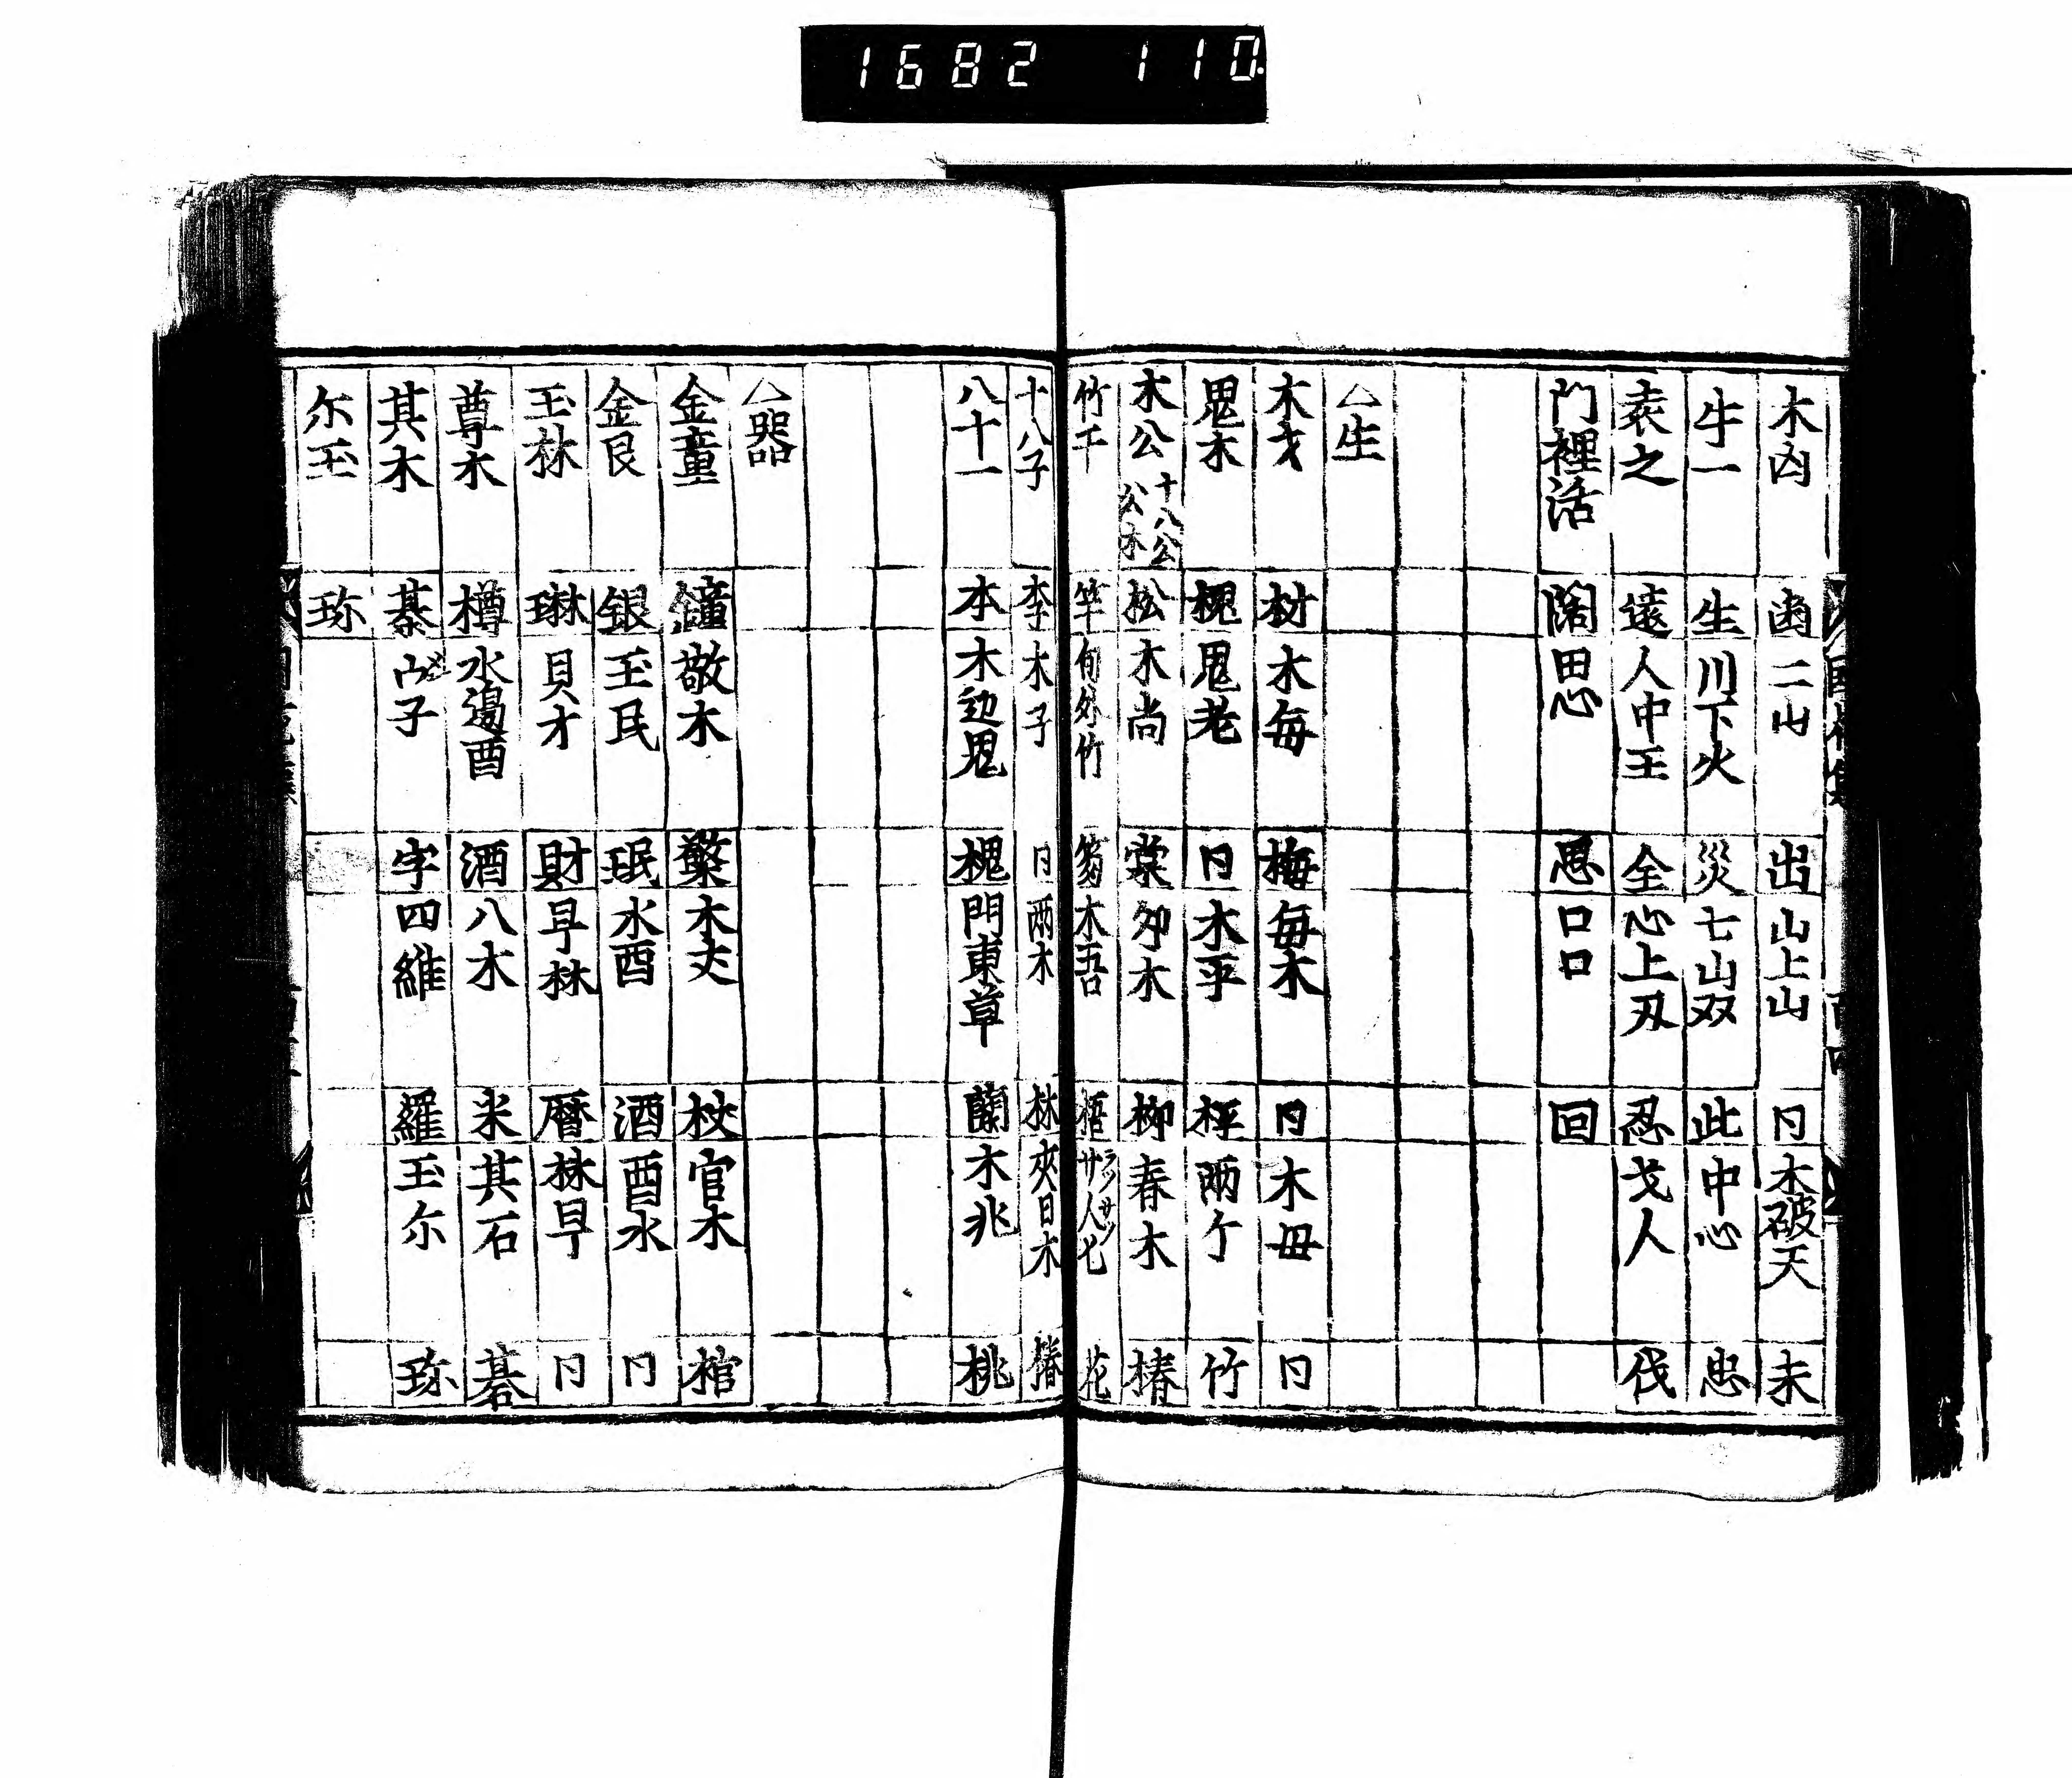 1682 110
木凶 凾 二山 出 山上山 冂 木破天 未
牛一 生 川下火 災 七山双 此 中心 忠
袁之 遠 人中王 全 心上刃 忍 戈人 伐
門裡活 闊 田心 思 口口 回
△生
木才 材 木毎 梅 毎木 冂 木毋 冂
鬼木 槐 鬼老 冂 木平 枰 兩个 竹
木公 十八公 公木 松 木尚 棠 夘木 柳 春木 椿
竹干 竿 旬外竹 木吾 梧 サ人匕 花
十八子 李 木子 冂 兩木 林 夾日木 椿
八十一 本 木边鬼 槐 門東草 蘭 木兆 桃
△器
金童 鐘 敬木 檠 木丈 杖 官木 棺
金艮 銀 玉民 珉 水酉 酒 酉水 冂
玉林 琳 貝才 財 早林 暦 林早 冂
尊木 樽 水邊酉 酒 八木 米 其石 碁
其木 棊 子 字 四維 羅 玉尓 珎
尓玉 珎